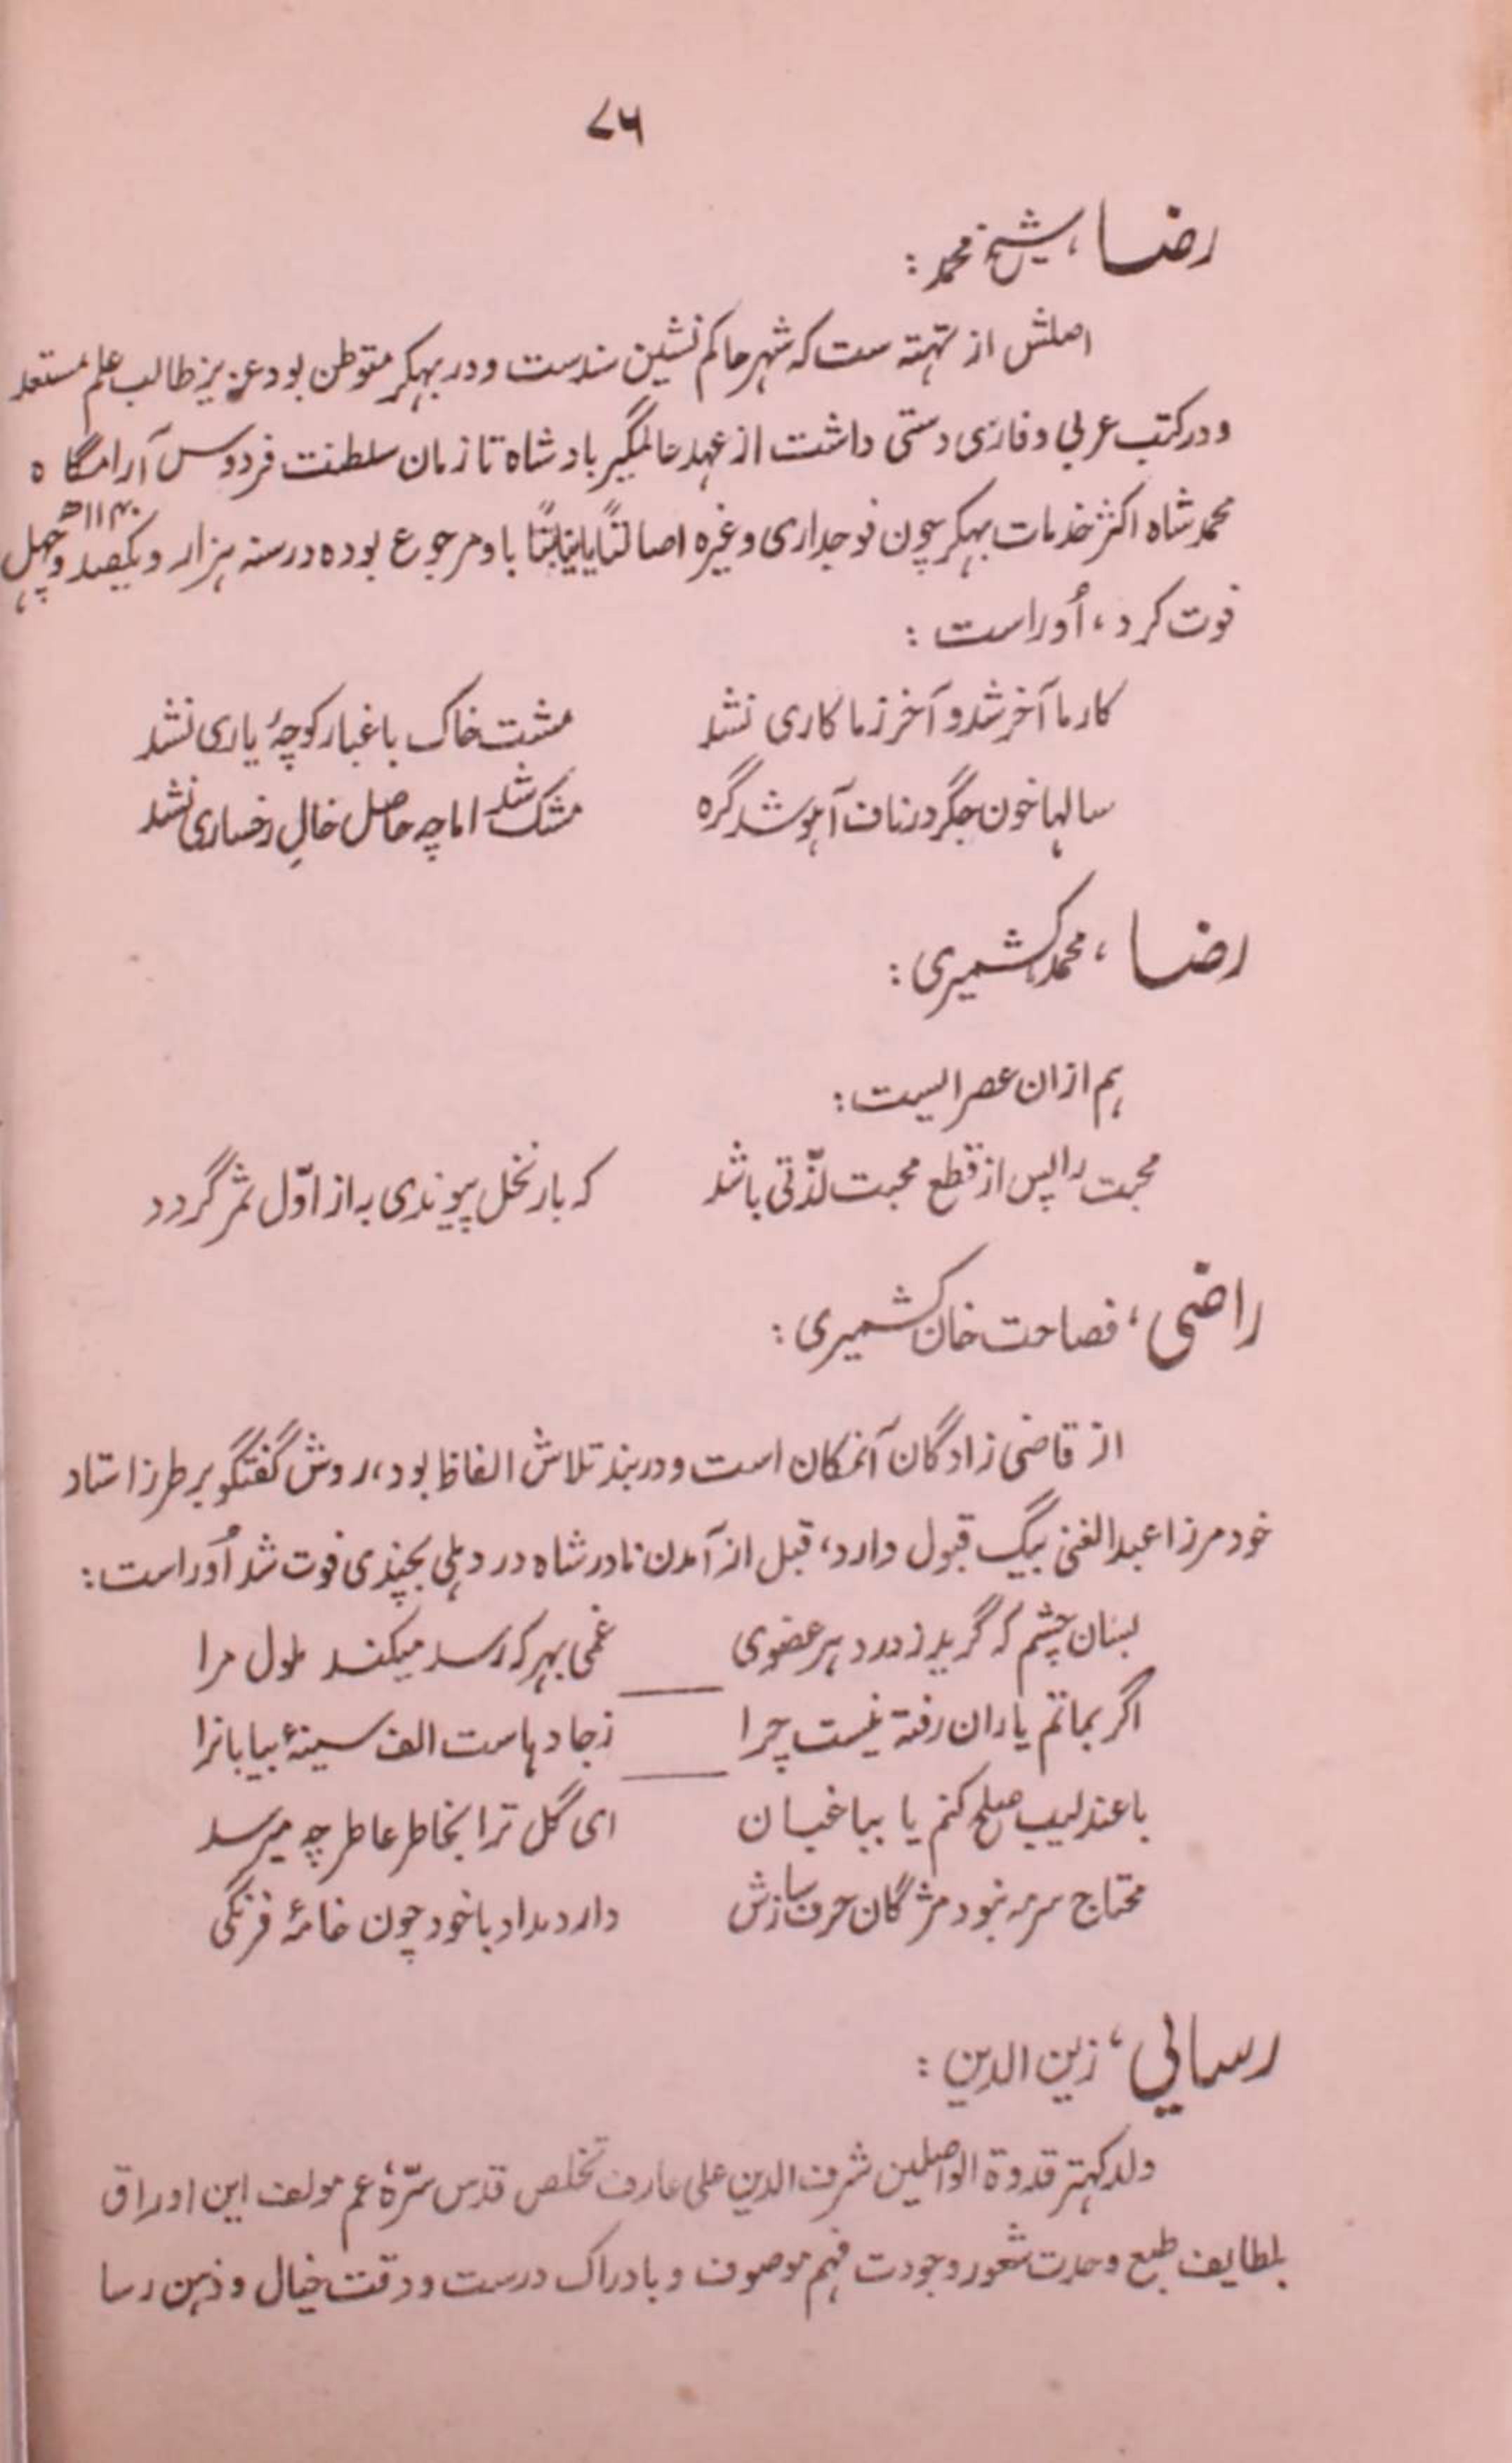 ۷۶
رضا، شیخ محمد:
اصلش از تهته ست که شهر حاکم نشین سندست و در بهکر متوطن بود عزیز طالب علم مستعد
و در کتب عربی و فارسی دستی داشت از عهد عالمگیر بادشاه تا زمان سلطنت فردوس آرامگاه
محمد شاه اکثر خدمات بهکر چون فوجداری وغیره اصالتاً یا نیابتاً باو مرجوع بوده در سنه هزار و یکصد و چهل ۱۱۴۰ھ
فوت کرد، اُوراست:
کار ما آخر شد و آخر ز ما کاری نشد مشت خاک با غبار کوچهٔ یاری نشد
سالها خون جگر در ناف آهو شد گره مشک شد اما چه حاصل خالِ رخساری نشد
رضا، محمد کشمیری:
هم ازان عصرایست:
محبت را پس از قطع محبت لذّتی باشد که بار نخل پیوندی به از اوّل ثمر گردد
راضی، فصاحت خان کشمیری:
از قاضی زادگان آنمکان است و در بند تلاش الفاظ بود، روش گفتگو بر طرز استاد
خود مرزا عبدالغنی بیگ قبول دارد، قبل از آمدن نادر شاه در دهلی بچندی فوت شد اُوراست:
بسان چشم که گرید ز درد هر عضوی غمی بهر که رسد میکند ملول مرا
اگر بماتم یاران رفته نیست چرا ز جادهاست الف سینهٔ بیابانرا
با عندلیب صلح کنم یا بباغبان ای گل ترا بخاطر عاطر چه میرسد
محتاج سرمه نبود مژگان حرف سازش دارد مداد با خود چون خامهٔ فرنگی
رسایی، زین الدین:
ولد کهتر قدوة الواصلین شرف الدین علی عارف تخلص قدس سرّهٗ عم مولف این اوراق
بلطایف طبع وحدت شعور و جودت فهم موصوف و با ادراک درست و دقت خیال و ذهن رسا